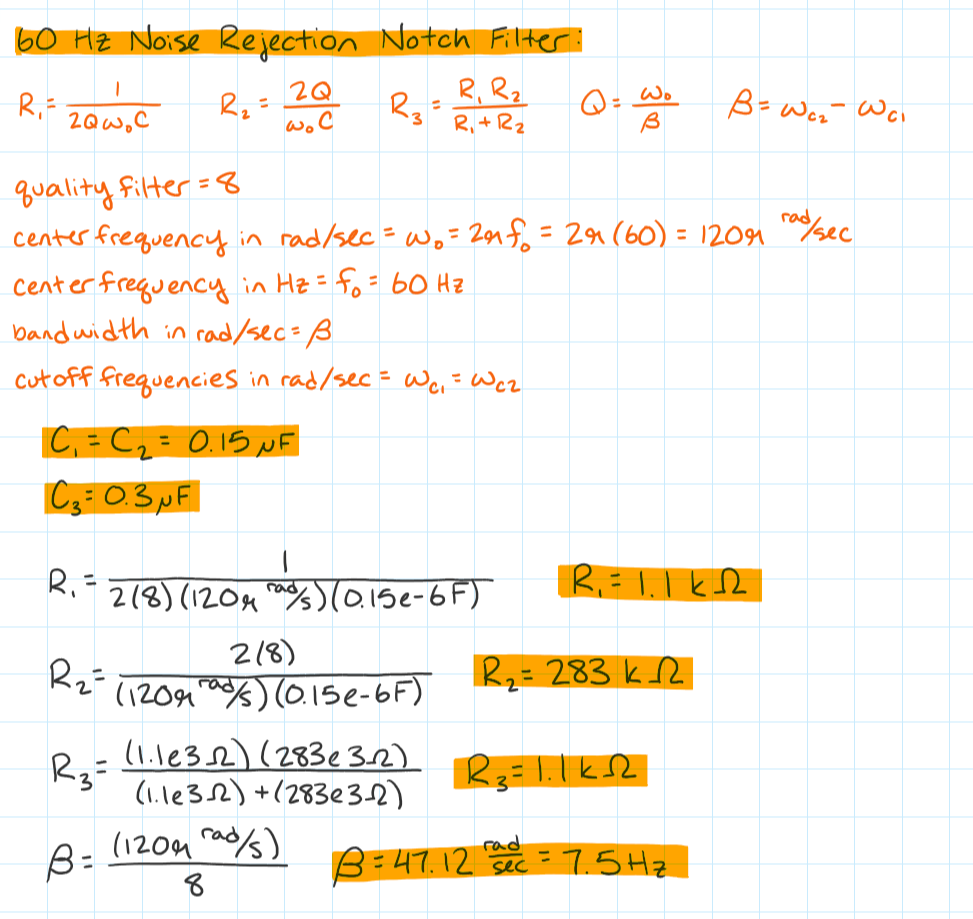 60 Hz Noise Rejection Notch Filter:
R₁ = 1 / (2Qω₀C) R₂ = 2Q / (ω₀C) R₃ = R₁R₂ / (R₁ + R₂) Q = ω₀ / β β = ωc₂ - ωc₁
quality filter = 8
center frequency in rad/sec = ω₀ = 2πf₀ = 2π(60) = 120π rad/sec
center frequency in Hz = f₀ = 60 Hz
bandwidth in rad/sec = β
cutoff frequencies in rad/sec = ωc₁ = ωc2
C₁ = C₂ = 0.15 μF
C₃ = 0.3 μF
R₁ = 1 / (2(8)(120π rad/s)(0.15e-6F)) R₁ = 1.1 kΩ
R₂ = 2(8) / ((120π rad/s)(0.15e-6F)) R₂ = 283 kΩ
R₃ = (1.1e3Ω)(283e3Ω) / ((1.1e3Ω) + (283e3Ω)) R₃ = 1.1 kΩ
β = (120π rad/s) / 8 β = 47.12 rad/sec = 7.5 Hz